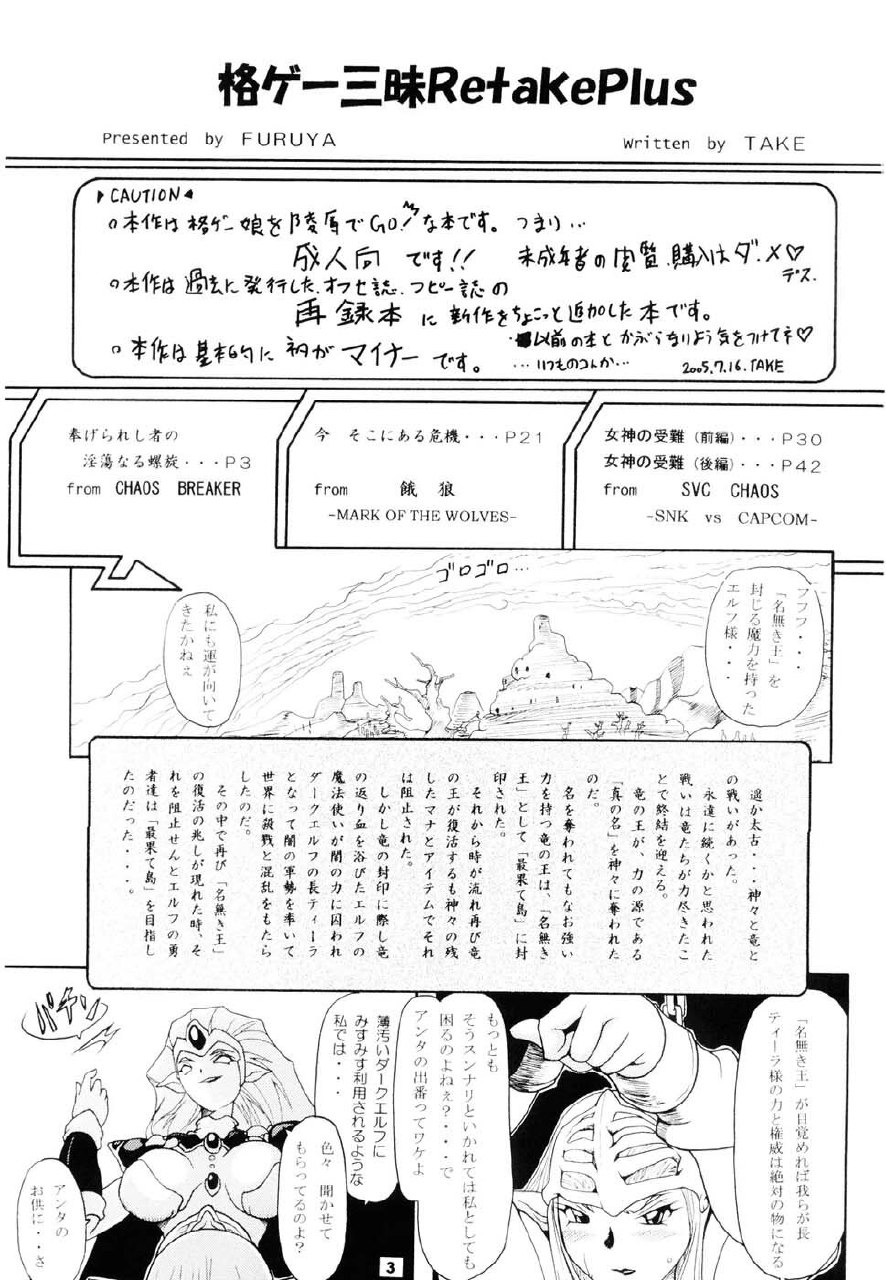 格ゲー三昧RetakePlus
Presented by FURUYA
Written by TAKE
CAUTION
○本作は格ゲー娘を陵辱でGO!な本です。つまり…
成人向です!! 未成年者の閲覧、購入はダメ♡
デス
○本作は過去に発行したオフセ誌、コピー誌の
再録本に新作をちょこっと追加した本です。
以前の本とかぶらないよう気をつけてネ♡
○本作は基本的にネタがマイナーです。
…いつものコンか…
2005.7.16.TAKE
奉げられし者の
淫蕩なる螺旋・・・P3
from CHAOS BREAKER
今 そこにある危機・・・P21
from 餓 狼
-MARK OF THE WOLVES-
女神の受難(前編)・・・P30
女神の受難(後編)・・・P42
from SVC CHAOS
-SNK vs CAPCOM-
ゴロゴロ…
フフフ・・・
「名無き王」を
封じる魔力を持った
エルフ様・・・
私にも運が向いて
きたかねぇ
遥か太古・・・神々と竜と
の戦いがあった。
永遠に続くかと思われた
戦いは竜たちが力尽きたこ
とで終結を迎える。
竜の王が、力の源である
「真の名」を神々に奪われた
のだ。
名を奪われてもなお強い
力を持つ竜の王は、「名無き
王」として「最果て島」に封
印された。
それから時が流れ再び竜
の王が復活するも神々の残
したマナとアイテムでそれ
は阻止された。
しかし竜の封印に際し竜
の返り血を浴びたエルフの
魔法使いが闇の力に囚われ
ダークエルフの長ティーラ
となって闇の軍勢を率いて
世界に殺戦と混乱をもたら
したのだ。
その中で再び「名無き王」
の復活の兆しが現れた時、そ
れを阻止せんとエルフの勇
者達は「最果て島」を目指し
たのだった・・・・。
「名無き王」が目覚めれば我らが長
ティーラ様の力と権威は絶対の物になる
もっとも
そうスンナリといかれては私としても
困るのよねぇ?・・・で
アンタの出番ってワケよ
薄汚いダークエルフに
みすみす利用されるような
私では・・・
パチン
色々 聞かせて
もらってるのよ?
アンタの
お供に・・さ
3